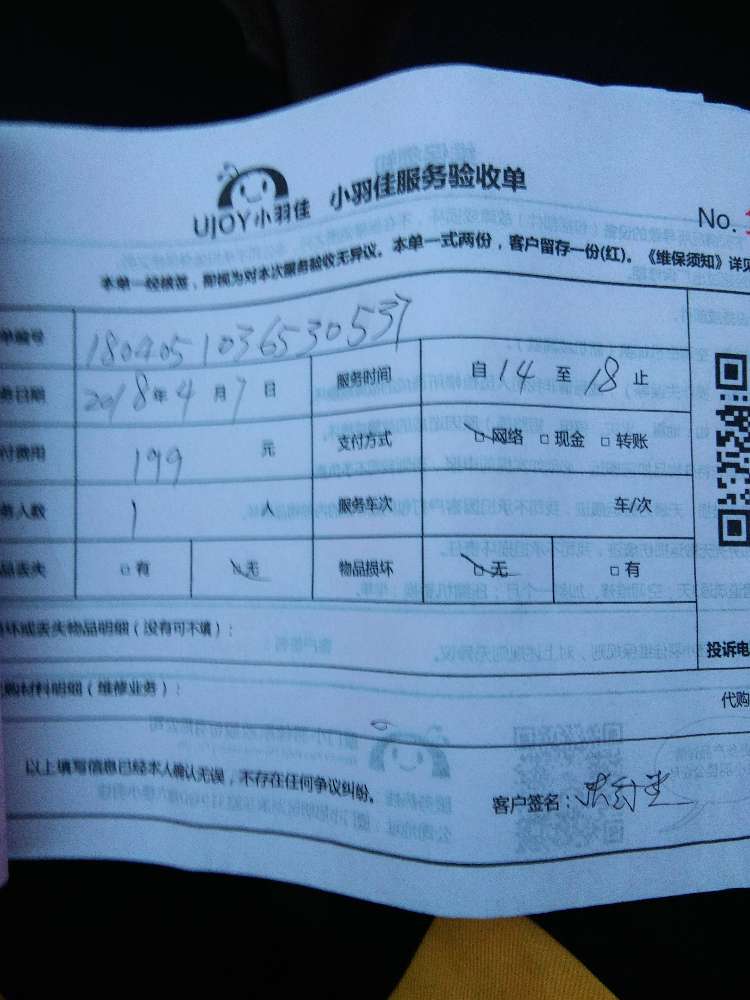 UJOY小羽佳 小羽佳服务验收单
No.
本单一经核签，即视为对本次服务验收无异议。本单一式两份，客户留存一份(红)。《维保须知》详见
单编号 1804051036530537
务日期 2018年4月7日 服务时间 自14至18止
付费用 199元 支付方式 □网络 □现金 □转账
务人数 1人 服务车次 车/次
品丢失 □有 □无 物品损坏 □无 □有
坏或丢失物品明细（没有可不填）：
投诉电
购材料明细（维修业务）：
代购
以上填写信息已经本人确认无误，不存在任何争议纠纷。
客户签名：